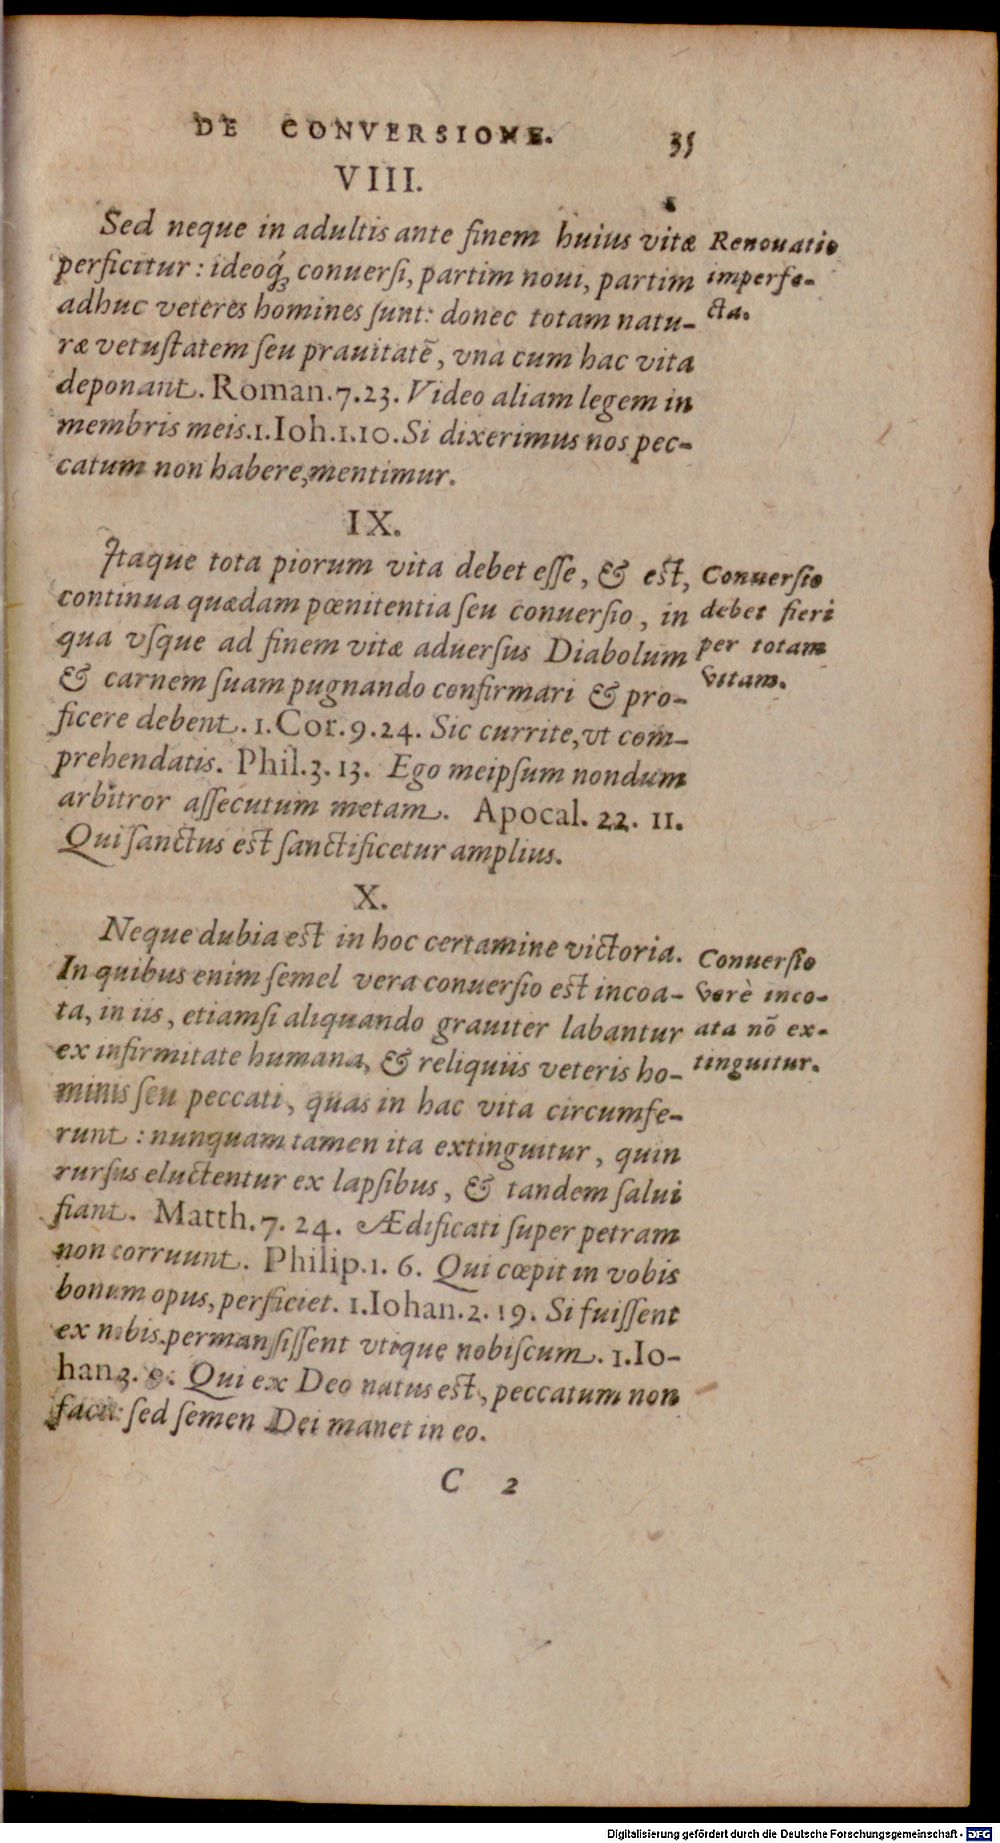 DE CONVERSIONE. 35
VIII.
Sed neque in adultis ante finem huius vitæ
perficitur: ideoq́ꝫ conuersi, partim noui, partim
adhuc veteres homines sunt: donec totam natu-
ræ vetustatem seu prauitatē, vna cum hac vita
deponant. Roman.7.23. Video aliam legem in
membris meis.1.Ioh.1.10.Si dixerimus nos pec-
catum non habere,mentimur.
Renouatio
imperfe-
cta.
IX.
Itaque tota piorum vita debet esse, & est,
continua quædam pœnitentia seu conuersio, in
qua vsque ad finem vitæ aduersus Diabolum
& carnem suam pugnando confirmari & pro-
ficere debent. 1.Cor.9.24. Sic currite,vt com-
prehendatis. Phil.3.13. Ego meipsum nondum
arbitror assecutum metam. Apocal.22.11.
Qui sanctus est sanctificetur amplius.
Conuersio
debet fieri
per totam
vitam.
X.
Neque dubia est in hoc certamine victoria.
In quibus enim semel vera conuersio est incoa-
ta, in iis, etiamsi aliquando grauiter labantur
ex infirmitate humana, & reliquiis veteris ho-
minis seu peccati, quas in hac vita circumfe-
runt: nunquam tamen ita extinguitur, quin
rursus eluctentur ex lapsibus, & tandem salui
fiant. Matth.7.24. Ædificati super petram
non corruunt. Philip.1.6. Qui cœpit in vobis
bonum opus, perficiet. 1.Iohan.2.19. Si fuissent
ex nobis.permansissent vtique nobiscum. 1.Io-
han3.9. Qui ex Deo natus est, peccatum non
facit: sed semen Dei manet in eo.
Conuersio
verè inco-
ata nō ex-
tinguitur.
C 2
Digitalisierung gefördert durch die Deutsche Forschungsgemeinschaft - DFG